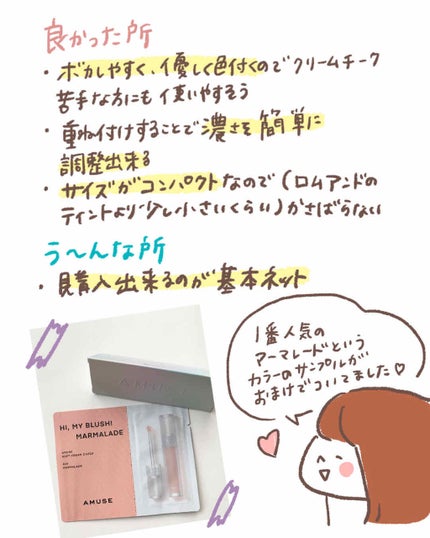 良かった所
・ボカしやすく、優しく色付くのでクリームチーク
苦手な方にも使いやすそう
・重ね付けすることで濃さを簡単に
調整出来る
・サイズがコンパクトなので(ロムアンドの
ティントより少し小さいくらい)かさばらない
う〜んな所
・購入出来るのが基本ネット
1番人気の
アーマレードという
カラーのサンプルが
おまけでついてました♡
AMUSE
HI, MY BLUSH!
MARMALADE
AMUSE